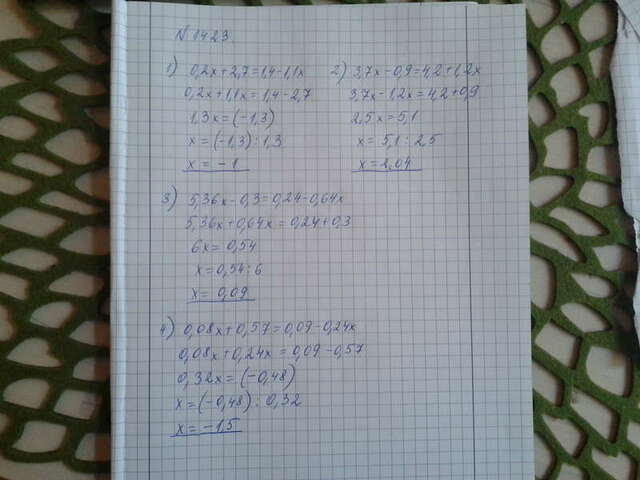 N 1423.
1) 0,2x+2,7=1,4-1,1x
0,2x+1,1x=1,4-2,7
1,3x=(-1,3)
x=(-1,3):1,3
x=-1
2) 3,7x-0,9=4,2+1,2x
3,7x-1,2x=4,2+0,9
2,5x=5,1
x=5,1:2,5
x=2,04
3) 5,36x-0,3=0,24-0,64x
5,36x+0,64x=0,24+0,3
6x=0,54
x=0,54:6
x=0,09
4) 0,08x+0,57=0,09-0,24x
0,08x+0,24x=0,09-0,57
0,32x=(-0,48)
x=(-0,48):0,32
x=-1,5